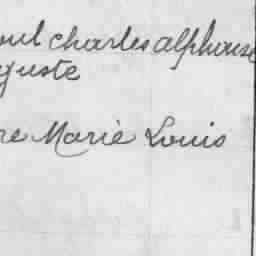 oul charles alphonse
guste
re Marie Louis